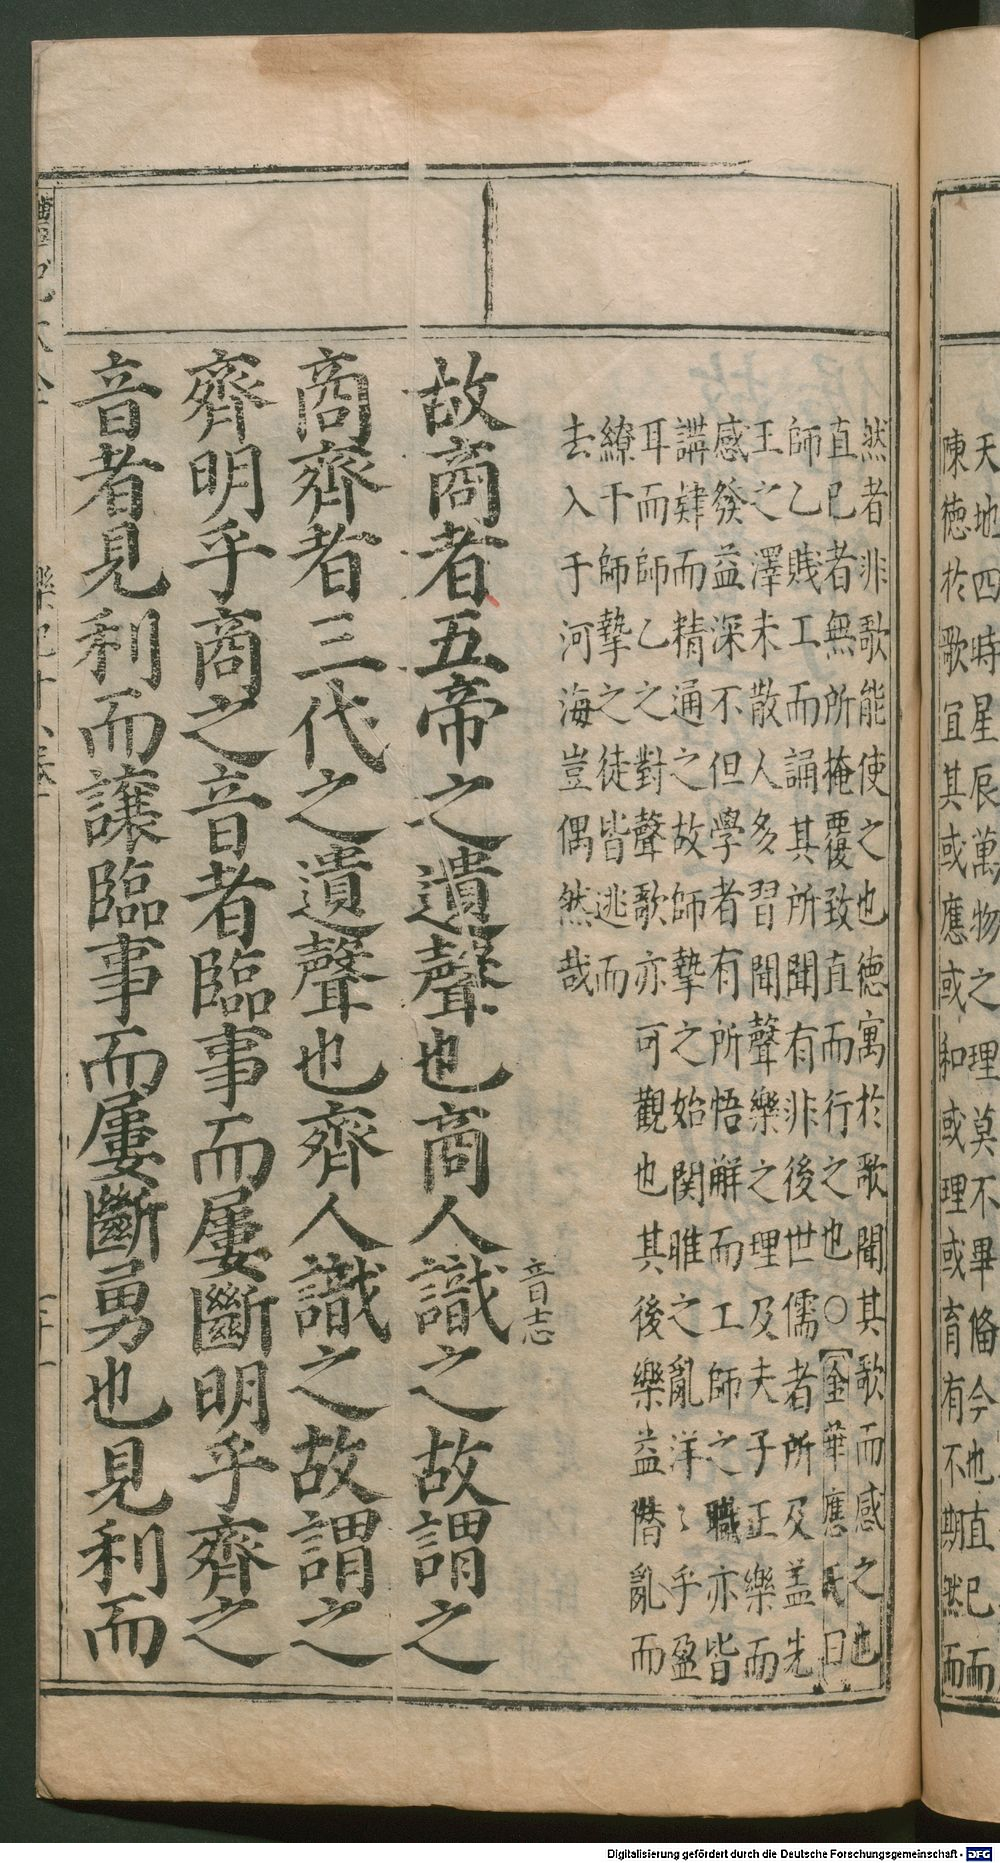 天地四時星辰萬物之理莫不畢備今也直巳而
陳徳於歌冝其或應或和或理或育有不期然而
然者非歌能使之也徳寓於歌聞其歌而感之也
直巳者無所掩覆致直而行之也○金華應氏曰
師乙賎工而誦其所聞有非後世儒者所及盖先
王之澤未散人多習聞聲樂之理及夫子正樂而
感發益深不但學者有所悟觧而工師之職亦皆
講肄而精通之故師摯之始関雎之亂洋〻乎盈
耳而師乙之對聲歌亦可觀也其後樂益僭亂而
繚干師摯之徒皆逃而
去入于河海豈偶然哉
故商者五帝之遺聲也商人識之故謂之
音志
商齊者三代之遺聲也齊人識之故謂之
齊明乎商之音者臨事而屢斷明乎齊之
音者見利而讓臨事而屢斷勇也見利而
樂記十八卷
Digitalisierung gefördert durch die Deutsche Forschungsgemeinschaft - DFG